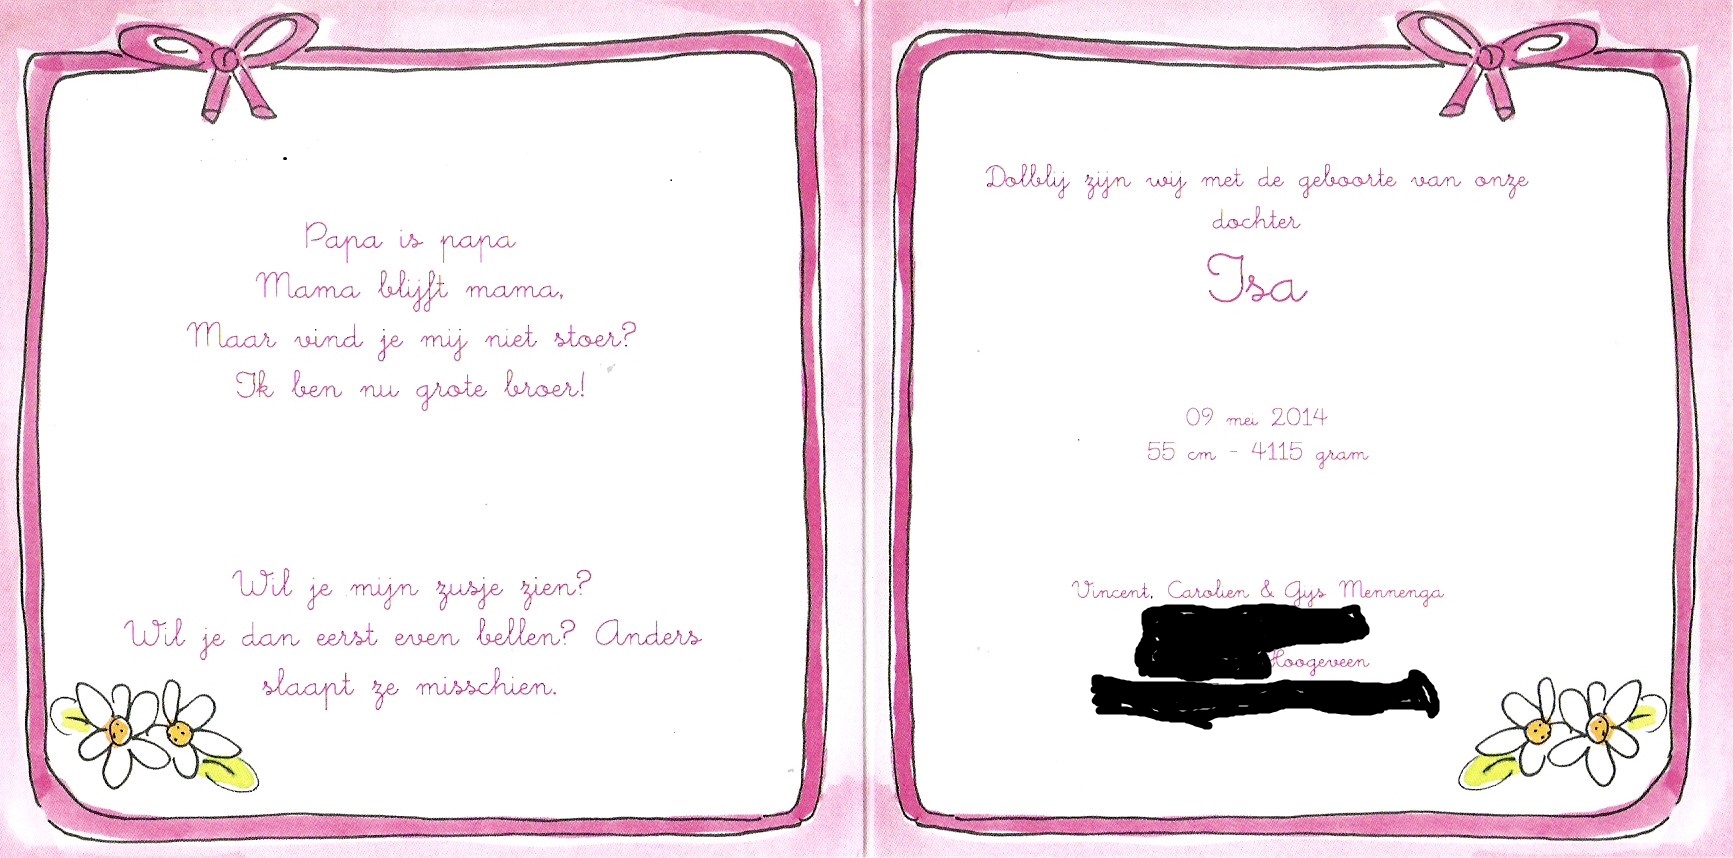 Papa is papa
Mama blijft mama,
Maar vind je mij niet stoer?
Ik ben nu grote broer!
Wil je mijn zusje zien?
Wil je dan eerst even bellen? Anders
slaapt ze misschien.
Dolblij zijn wij met de geboorte van onze
dochter
Isa
09 mei 2014
55 cm - 4115 gram
Vincent, Carolien & Gijs Mennenga
Hoogeveen